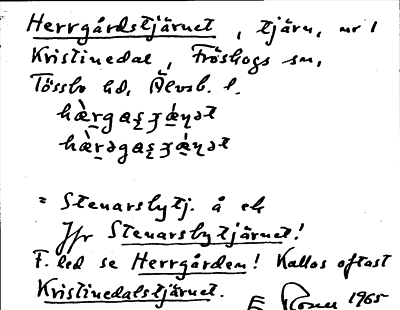 Herrgårdstjärnet, tjärn, nr 1
Kristinedal, Fröskogs sn,
Tössbo hd, Älvsb. l.
= Stenarsbytj. å ek
Jfr Stenarsbytjärnet!
F. led se Herrgården! Kallas oftast
Kristinedalstjärnet.
E Rosen 1965